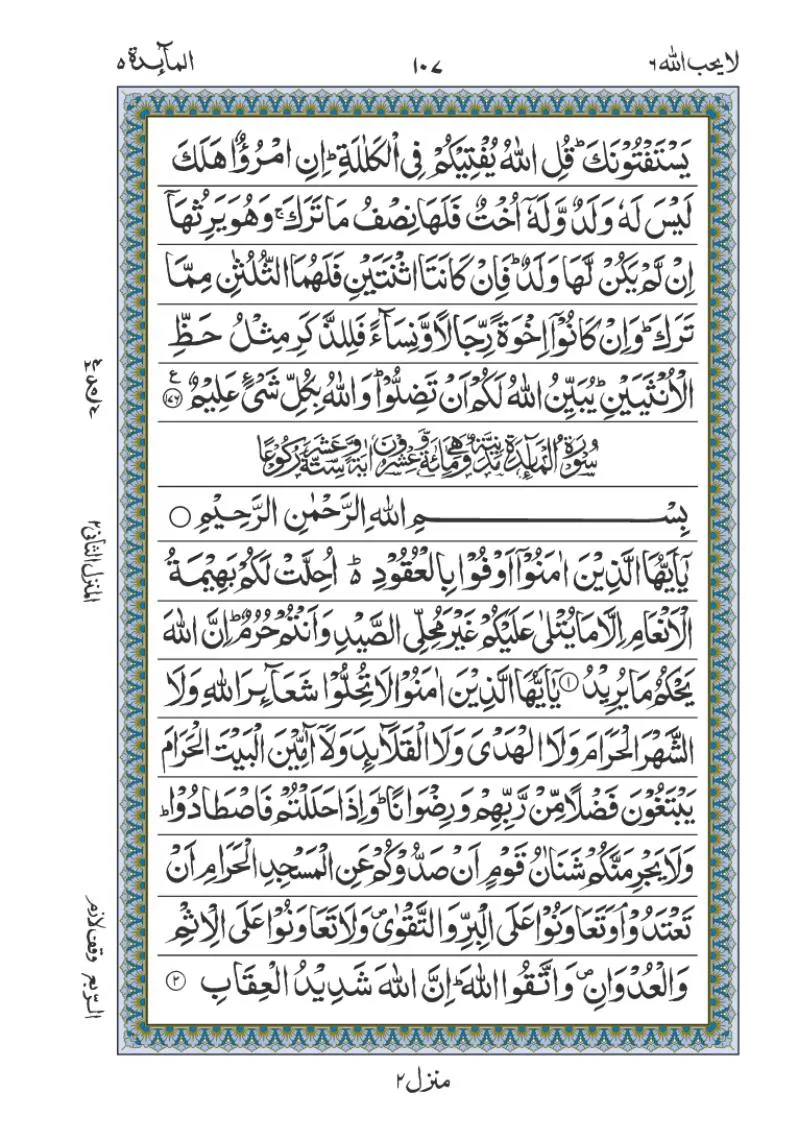 لا يحب الله ٦
١٠٧
المآئدة ٥
يَسْتَفْتُوْنَكَ ؕ قُلِ اللّٰهُ يُفْتِيْكُمْ فِى الْكَلٰلَةِ ؕ اِنِ امْرُؤٌا هَلَكَ
لَيْسَ لَهٗ وَلَدٌ وَّلَهٗۤ اُخْتٌ فَلَهَا نِصْفُ مَا تَرَكَ ۚ وَهُوَ يَرِثُهَاۤ
اِنْ لَّمْ يَكُنْ لَّهَا وَلَدٌ ؕ فَاِنْ كَانَتَا اثْنَتَيْنِ فَلَهُمَا الثُّلُثٰنِ مِمَّا
تَرَكَ ؕ وَاِنْ كَانُوْۤا اِخْوَةً رِّجَالًا وَّنِسَآءً فَلِلذَّكَرِ مِثْلُ حَظِّ
الْاُنْثَيَيْنِ ؕ يُبَيِّنُ اللّٰهُ لَكُمْ اَنْ تَضِلُّوْا ؕ وَاللّٰهُ بِكُلِّ شَىْءٍ عَلِيْمٌ ﴿۱۷۶﴾ ع
سُوْرَةُ الْمَآئِدَةِ مَدَنِيَّةٌ وَّهِيَ مِائَةٌ وَّعِشْرُوْنَ اٰيَةً وَّسِتَّةَ عَشَرَ رُكُوْعًا
بِسْـــــمِ اللّٰهِ الرَّحْمٰنِ الرَّحِيْمِ ○
يٰۤاَيُّهَا الَّذِيْنَ اٰمَنُوْۤا اَوْفُوْا بِالْعُقُوْدِ ؕ۬ اُحِلَّتْ لَكُمْ بَهِيْمَةُ
الْاَنْعَامِ اِلَّا مَا يُتْلٰى عَلَيْكُمْ غَيْرَ مُحِلِّى الصَّيْدِ وَاَنْتُمْ حُرُمٌ ؕ اِنَّ اللّٰهَ
يَحْكُمُ مَا يُرِيْدُ ﴿۱﴾ يٰۤاَيُّهَا الَّذِيْنَ اٰمَنُوْا لَا تُحِلُّوْا شَعَآئِرَ اللّٰهِ وَلَا
الشَّهْرَ الْحَرَامَ وَلَا الْهَدْىَ وَلَا الْقَلَآئِدَ وَلَاۤ آٰمِّيْنَ الْبَيْتَ الْحَرَامَ
يَبْتَغُوْنَ فَضْلًا مِّنْ رَّبِّهِمْ وَرِضْوَانًا ؕ وَاِذَا حَلَلْتُمْ فَاصْطَادُوْا ؕ
وَلَا يَجْرِمَنَّكُمْ شَنَاٰنُ قَوْمٍ اَنْ صَدُّوْكُمْ عَنِ الْمَسْجِدِ الْحَرَامِ اَنْ
تَعْتَدُوْا ۘ وَتَعَاوَنُوْا عَلَى الْبِرِّ وَالتَّقْوٰى ۪ وَلَا تَعَاوَنُوْا عَلَى الْاِثْمِ
وَالْعُدْوَانِ ۪ وَاتَّقُوا اللّٰهَ ؕ اِنَّ اللّٰهَ شَدِيْدُ الْعِقَابِ ﴿۲﴾
المنزل الثانی ۲
الربع
وقف لازم
منزل ۲